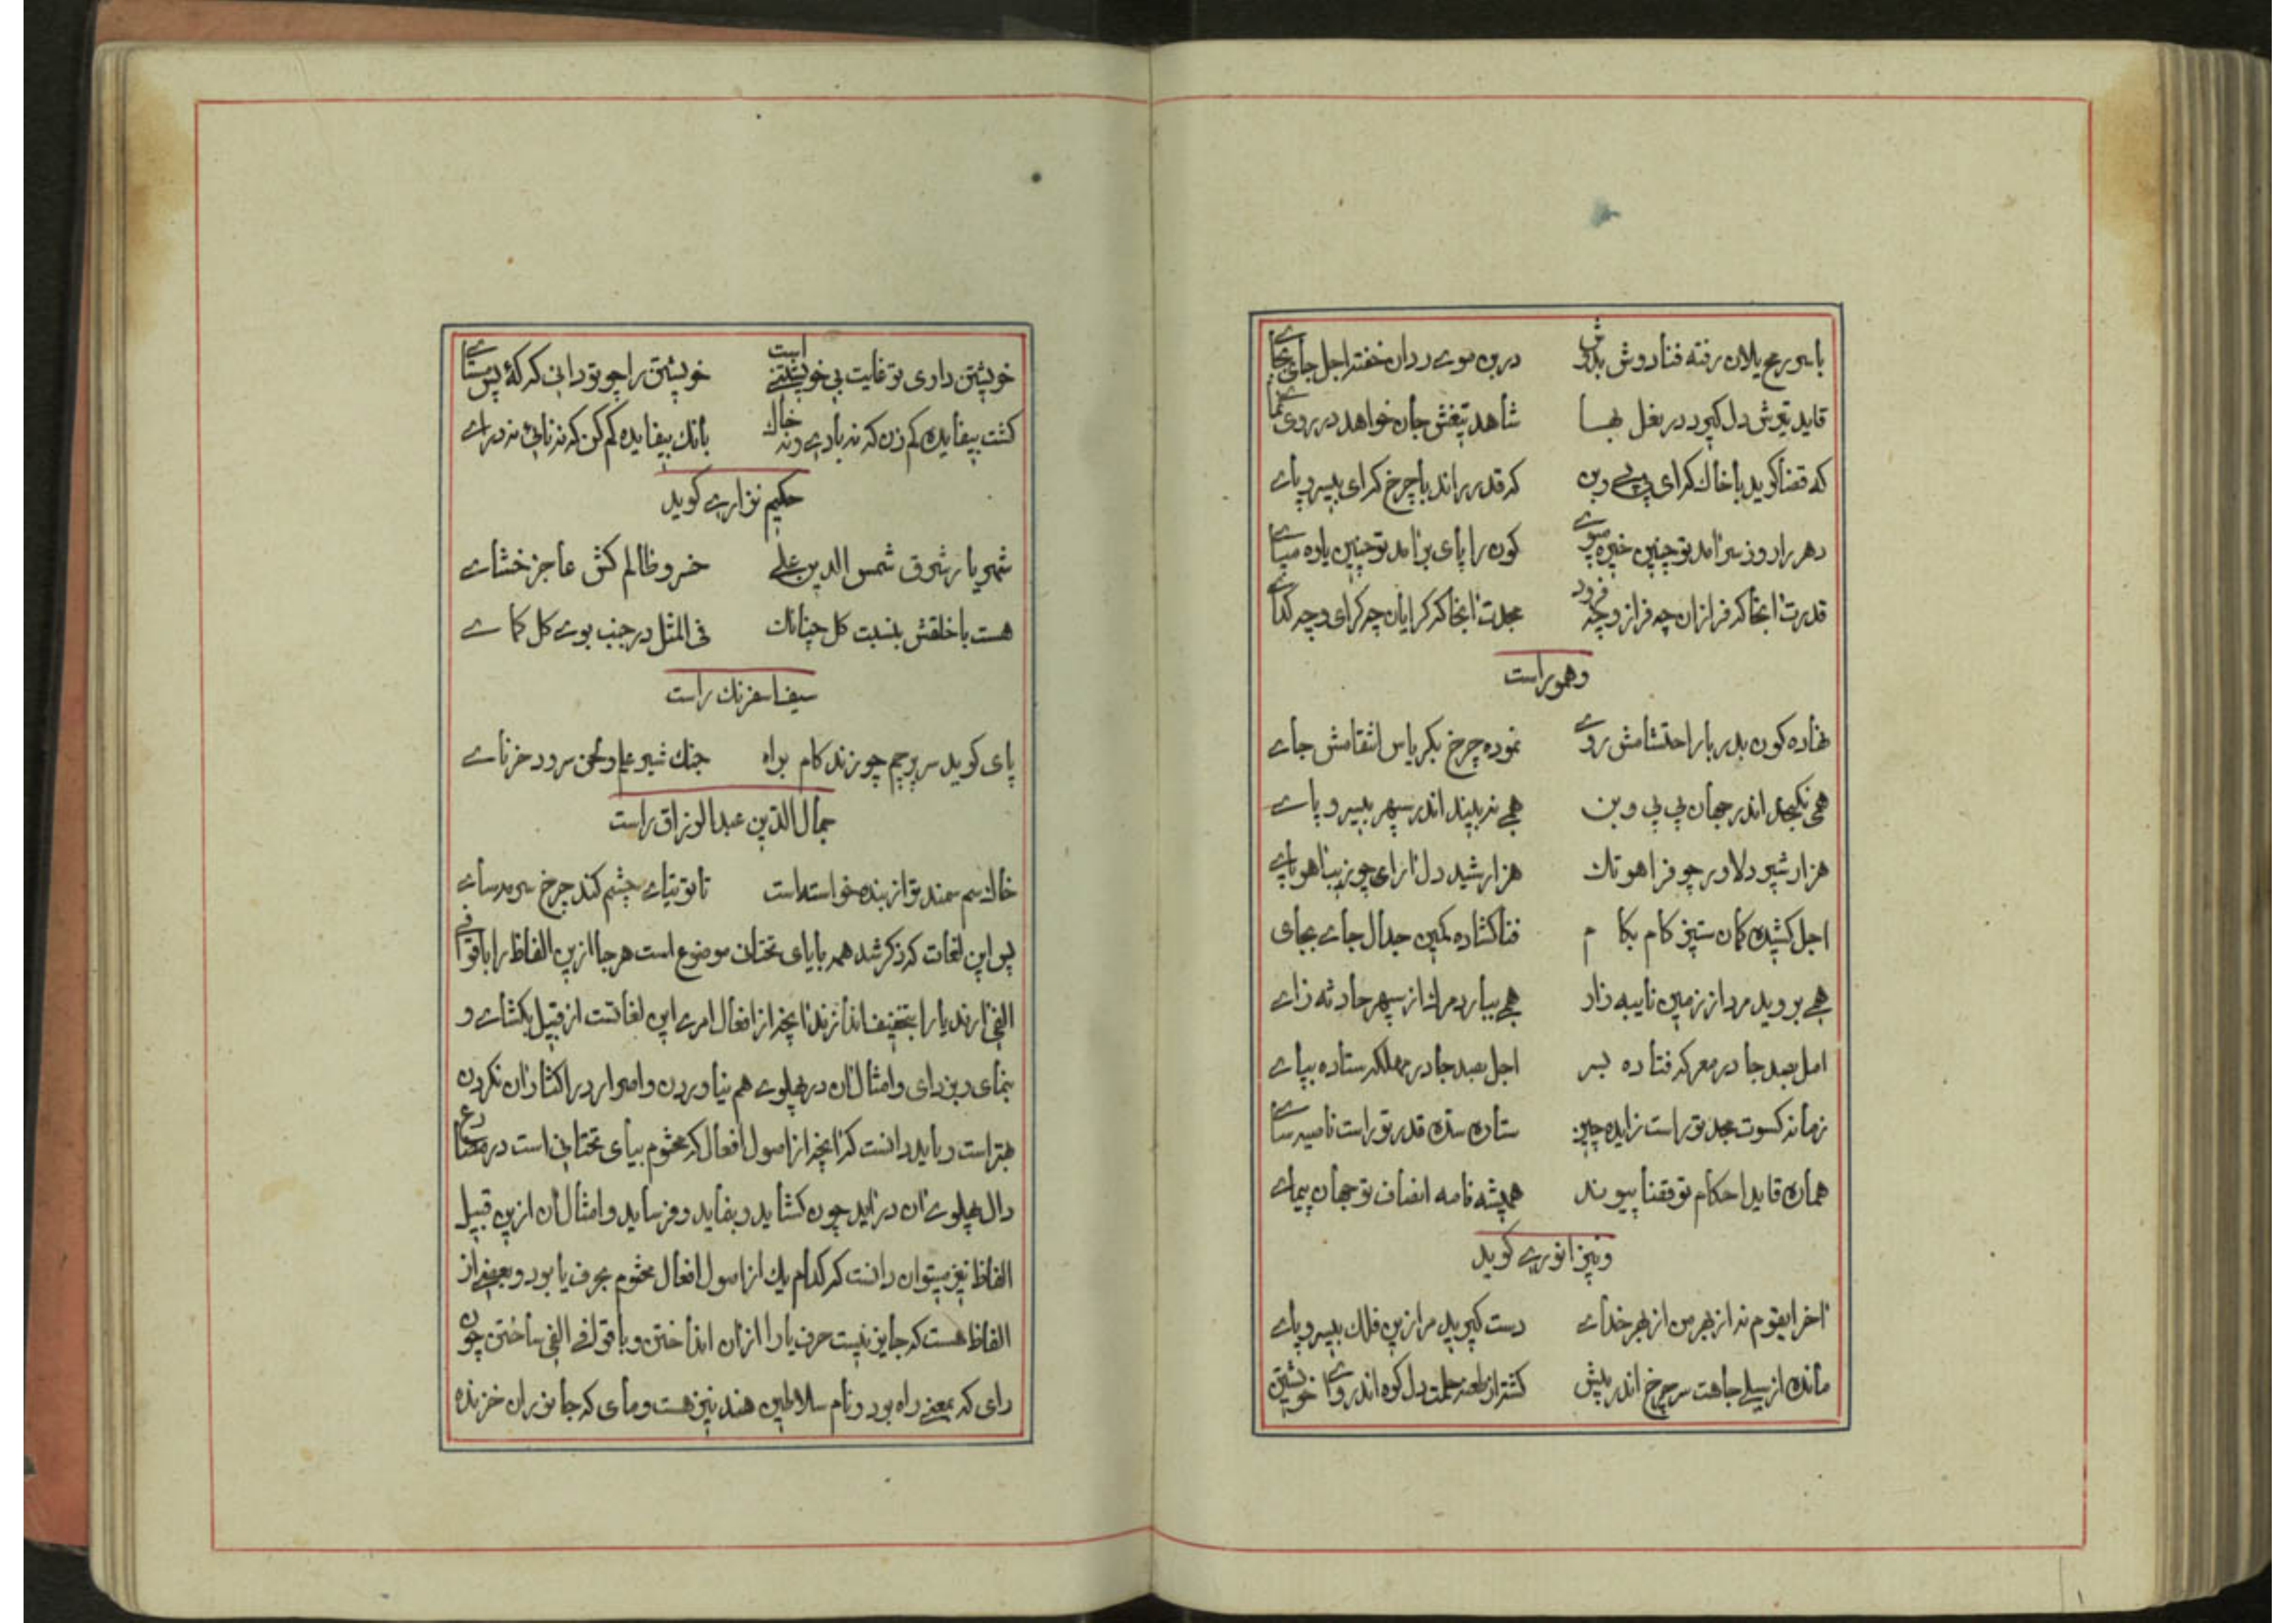 با سر رمح یلان رفته فنا دوش بدوش در بن موی ردان خفته اجل جای بجای
قاید تیرش دل گیرد در بغل شاهد تیغش جان خواهد در روی نمای
که قضا گوید با خاک که ای بی پی و بن که قدر راند با چرخ که ای بیسر و پای
دهر را روز سر آمد تو چنین خیره موی کون را پای بر آمد تو چنین یاوه میای
قدرت آنجا که فرازان چه فراز و چه فرود مجدت آنجا که گرایان چه گرای و چه گدای
وهموراست
نهاده کون بدربار احتشامش روی نموده چرخ بکریاس انتقامش جای
همی نگنجد اندر جهان بی پی و بن همی نه بیند اندر سپهر بیسر و پای
هزار شیر دلاور چو فر آهو تک هزار شید دل آرای چو زیبا هوپای
اجل کشیده کمان ستیز کام بکام فنا گشاده کمین جدال جای بجای
همی بروید مرد از زمین نایبه زاد همی ببارد مرگ از سپهر حادثه زای
امل بصد جا در معرکه فتاده بسر اجل بصد جا در مهلکه ستاده بپای
زمانه کسوت مجد تو راست زاینده چین ستاره سده قدر تو راست ناصیه سای
هماره قاید احکام تو قضا پیوند همیشه نامه انصاف تو جهان پیمای
ونیز انوری گوید
آخر ایقوم نه از بهر من از بهر خدای دست گیرید مرا زین فلک بیسر و پای
مانده از سیلی جاهت سر چرخ اندر پیش گشته از طعنه حلمت دل کوه اندروای خویشتن
خویشتن داری تو غایت بی خویشتنی است خویشتن را چو تو دانی که که پس مستای
گشت بیفایده کم زن که نه بادی و نه خاک بانگ بیفایده کم کن که نه نائی نه درای
حکیم نزاری گوید
شهریار شرق شمس الدین علی خسرو ظالم کش عاجز خشای
هست با خلقش بنسبت گل چنانک فی المثل در جنب بوی گل کمای
سیف اسفرنک راست
پای کوبد سر پرچم چو زند کام براه جنک شیر علم و لحن سرود خرنای
جمال الدین عبدالرزاق راست
خاک سم سمند تو از بنده خواسته است تا توتیای چشم کند چرخ سرمه سای
پس این لغات که ذکر شد همه بایای تحتانی موضوع است هر جا ازین الفاظ را با قوافی
الفی آرند یا را بتخفیف اندازند آنچه از افعال امری این لغاتست از قبیل بگشای و
بنمای و بزدای و امثال آن در پهلوی هم نیاوردن و اصرار در اکثار آن نکردن
بهتر است و باید دانست که آنچه از اصول افعال که مختوم بیای تحتانی است در مضارع
دال پهلوی آن در آید چون گشاید و بفاید و فرساید و امثال آن ازین قبیل
الفاظ نیز میتوان دانست که کدام یک از اصول افعال مختوم بحرف یا بود و بعضی از
الفاظ هست که جایز نیست حرف یا را از آن انداختن و با قوافی الفی ساختن چون
رای که بمعنی راه بود و نام سلاطین هند نیز هست و مای که جانوران خزنده